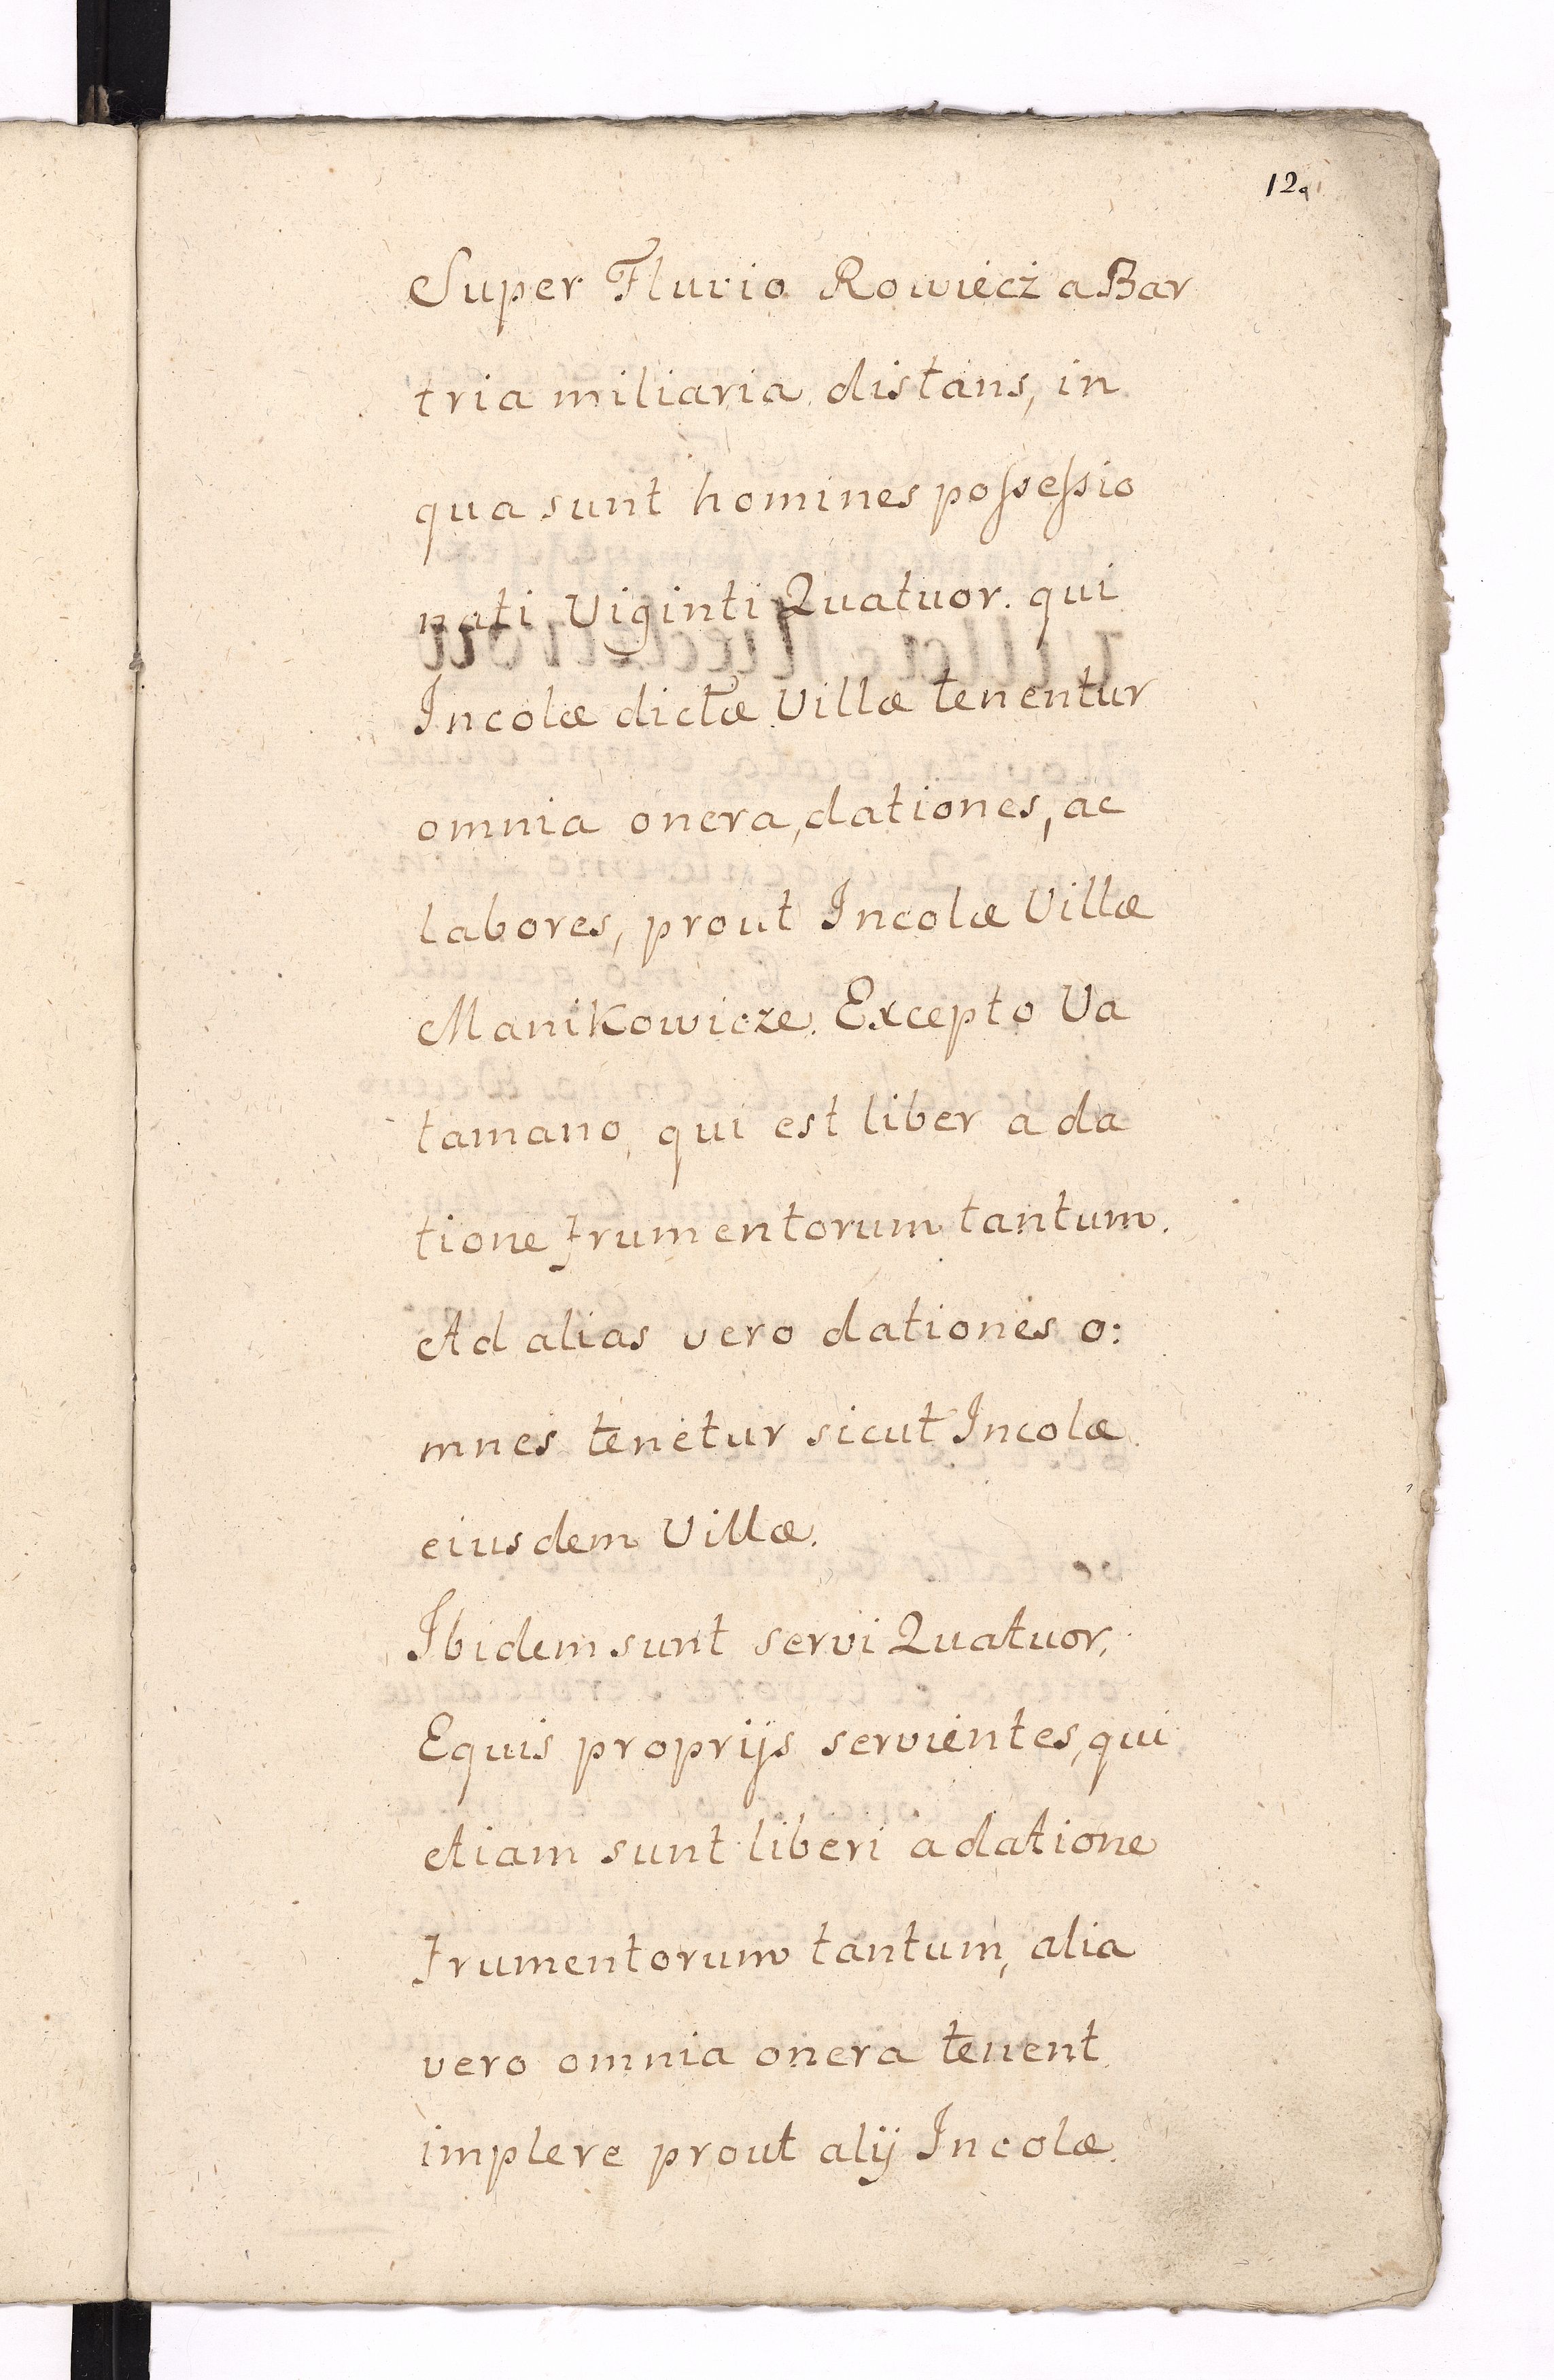 12a
Super Fluvio Rowiecz a Bar
tria miliaria distans, in
qua sunt homines possessio
nati Viginti Quatuor. qui
Incolæ dictæ Villæ tenentur
omnia onera, dationes, ac
labores, prout Incolæ Villæ
Manikowicze. Excepto Va
tamano, qui est liber a da
tione frumentorum tantum.
Ad alias vero dationes o:
mnes tenetur sicut Incolæ
eiusdem Villæ.
Ibidem sunt servi Quatuor,
Equis proprijs servientes, qui
etiam sunt liberi a datione
frumentorum tantum, alia
vero omnia onera tenent
implere prout alij Incolæ.